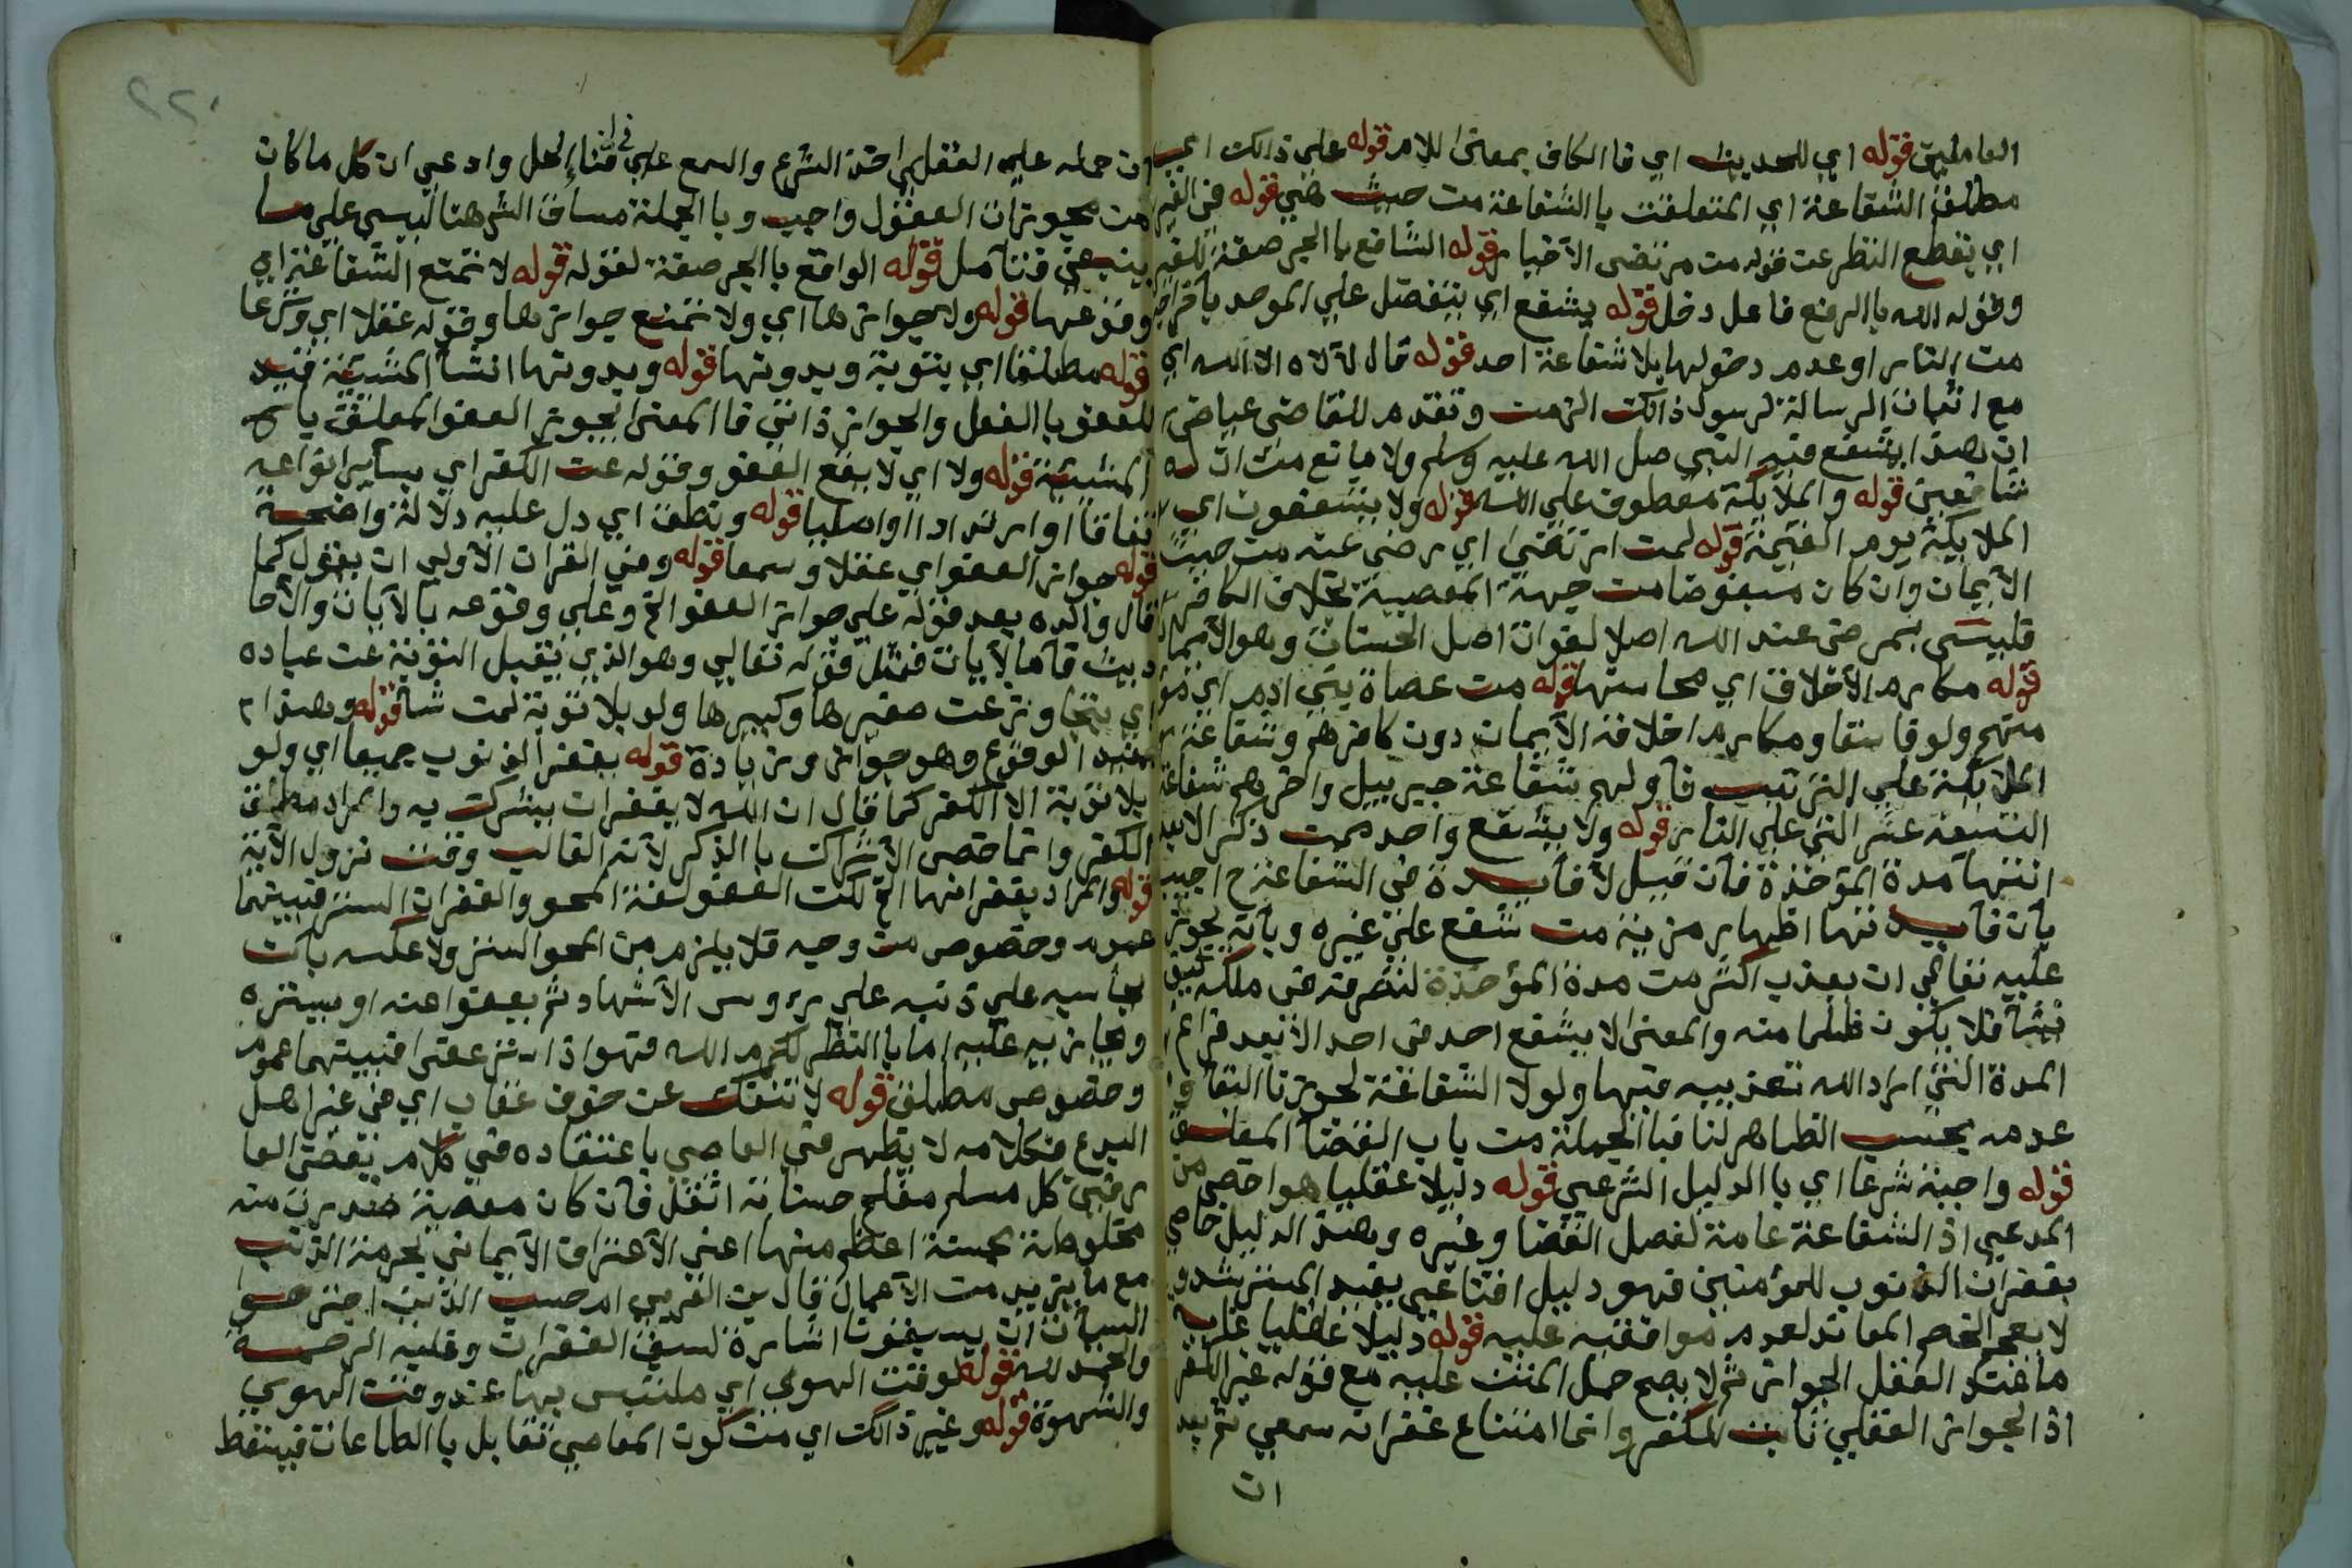 العاملين قوله اي للحديث اي فا الكاف بمعنى اللام قوله على ذالك اي
مطلق الشفاعة اي المتعلقت با الشفاعة من حيث هي قوله في الغير
اي بقطع النظر عن قوله من مرتضى الاخيار قوله الشافع با الجر صفة للغير
وقوله الله با الرفع فاعل دخل قوله يشفع اي يتفضل على الموحد
من النار او عدم دخولها بلا شفاعة احد قوله قال لا اله الا الله اي
مع اثبات الرسالة لرسول ذالك الزمن وتقدم للقاضي عياض
ان هذا يشفع فيه النبي صل الله عليه وسلم ولا مانع من ان له
شافعين قوله والملايكة معطوف على الله قوله ولا يشفعون اي
الملايكة يوم القيمة قوله لمن ارتضى اي رضي عنه من حيث
الايمان وان كان مبغوضا من جهة المعصية بخلاف الكافر
فليس بمرضي عند الله اصلا لفوات اصل الحسنات وهو الايمان
قوله مكارم الاخلاق اي محاسنها قوله من عصاة بني ادم اي
منهم ولو فاسقا ومكارم اخلاقه الايمان دون كافرهم وشفاعة
الملايكة على الترتيب فاولهم شفاعة جبرييل واخرهم شفاعة
التسعة عشر التي على النار قوله ولا يشفع واحد ممن ذكر الا بعد
انتهآ مدة المؤخذة فان قيل لا فايدة في الشفاعة ح اجيب
بان فايدتها اظهار مزية من شفع على غيره وبانه يجوز
عليه تعالى ان يعذب اكثر من مدة المؤخذة لتصرفه في ملكه كيف
يشآ فلا يكون ظلما منه والمعنى لا يشفع احد في احد الا بعد فراغ
المدة التي اراد الله تعذيبه فيها ولولا الشفاعة لجوزنا البقآ و
عدمه بحسب الظاهر لنا فبا الجملة من باب القضآ المعلق
قوله واجبة شرعا اي با الدليل الشرعي قوله دليلا عقليا هو اخص من
المدعي اذ الشفاعة عامة لفصل القضا وغيره وهذا الدليل خاص
بغفران الذنوب للمؤمنين فهو دليل اقناعي يفيد المسترشد و
لا يفحم الخصم المعاند لعدم موافقته عليه قوله دليلا عقليا
ما عند العقل الجواز ثم لا يصح حمل المتن عليه مع قوله غير الكفر
اذ الجواز العقلي ثابت للكفر وانما امتناع غفرانه سمعي ثم بعد
ان
٢٢٠
ان حمله على العقلي احتذ الشرع والسمع على في اقتناء الحل وادعي ان كل ما كان
من مجوزات العقول واجب وبا الجملة مساق الش هنا ليس على ما
ينبغي فتآمل قوله الواقع با الجر صفة لقوله قوله لا تمتع الشفاعة اي
وقوعها قوله ولا جوازها اي ولا تمتنع جوازها وقوله عقلا اي وشرعا
قوله مطلقا اي بتوبة وبدونها قوله وبدونها ان شآ المشيئة قيد
للعفو با الفعل والجواز ذاتي فا المعنى يجوز العفو المعلق با
المشيئة قوله ولا اي لا يقع العفو وقوله عن الكفر اي بسآير انواعه
نفاقا او ارتدادا او اصليا قوله ونطق اي دل عليه دلالة واضحة
قوله جواز العفو اي عقلا وسمعا قوله وفي القران الاولى ان يقول كما
قال والده بعد قوله على جواز العفو الخ وعلى وقوعه بالايات والاحا
ديث فآما الايات فمثل قوله تعالى وهو الذي يقبل التوبة عن عباده
اي يتجاوز عن صغيرها وكبيرها ولو بلا توبة لمن شآ قوله وهذا
يفيد الوقوع وهو جواز وزيادة قوله يغفر الذنوب جميعا اي ولو
بلا توبة الا الكفر كما قال ان الله لا يغفر ان يشرك به والمراد مطلق
الكفر وانما خص الاشراك با الذكر لآنه الغالب وقت نزول الآية
قوله والمراد بغفرانها الخ لكن العفو لغة المحو والغفران الستر فبينهما
عموم وخصوص من وجه فلا يلزم من المحو الستر ولا عكسه بان
يحاسبه على ذنبه على رءوس الاشهاد ثم يعفوا عنه او يستره
ويجازيه عليه اما با النظر لكرم الله فهو اذا ستر عفى فبينهما عموم
وخصوص مطلق قوله لا تنفك عن خوف عقاب اي في غير اهل
البدع فكلامه لا يظهر في العاصي باعتقاده في كلام بعض العا
رفين كل مسلم مفلح حسناته اثقل فان كان معصية صدرت منه
مخلوطة بحسنة اعظم منها اعني الاعتراف الايماني بحرمة الذنب
مع ما يزيد من الاعمال قال بن العربي ام حسب الذين اجترحوا
السيآت ان يسبقونا اشارة لسبق الغفران وغلبة الرحمة
والحمد لله قوله لوقت الهوي اي ملتبس بها عند وقت الهوي
والشهوة قوله وغير ذالك اي من كون المعاصي تقابل با الطاعات فيسقط